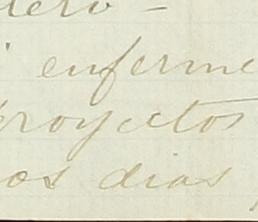 nero -
enferme
proyectos
os dias